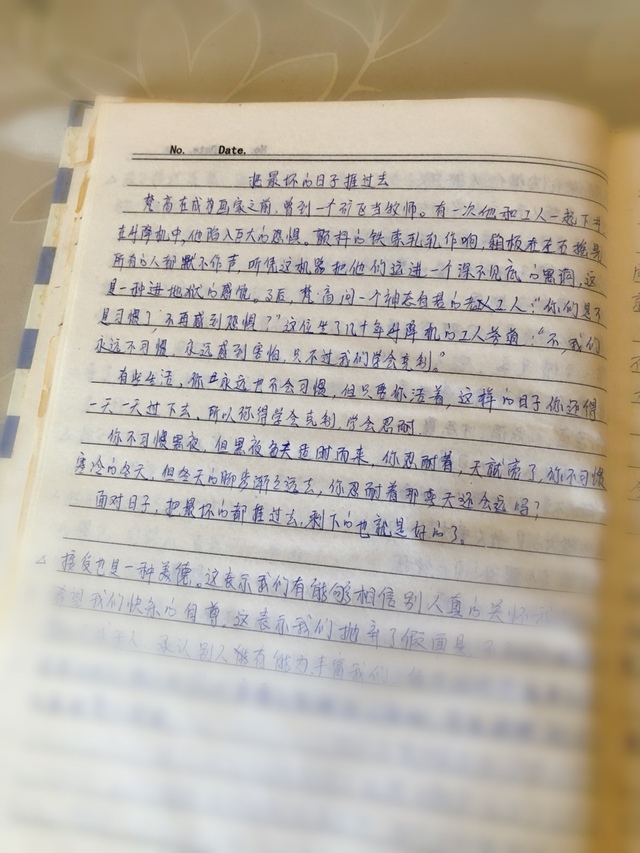 No. Date.
把最坏的日子推过去
梵高在成为画家之前，曾到一个矿区当牧师。有一次他和工人一起下井
在升降机中，他陷入巨大的恐惧。颤抖的铁索轧轧作响，箱板在左右摇晃
所有的人都默不作声，听凭这机器把他们运进一个深不见底的黑洞，这
是一种进地狱的感觉。之后，梵高问一个神态自若的老工人："你们是不
是习惯了，不再感到恐惧？"这位坐了几十年升降机的工人答道："不，我们
永远不习惯，永远感到害怕，只不过我们学会克制。"
有些生活，你永远也不会习惯，但只要你活着，这样的日子你还得
一天一天过下去，所以你得学会克制，学会忍耐
你不习惯黑夜，但黑夜每天适时而来，你忍耐着，天就亮了，你不习惯
寒冷的冬天，但冬天的脚步渐之远去，你忍耐着那春天还会远吗？
面对日子，把最坏的都推过去，剩下的也就是好的了。
接受也是一种美德。这表示我们有能够相信别人真的关怀
我们快乐的自尊。这表示我们抛弃了假面具
承认别人能有能力丰富我们